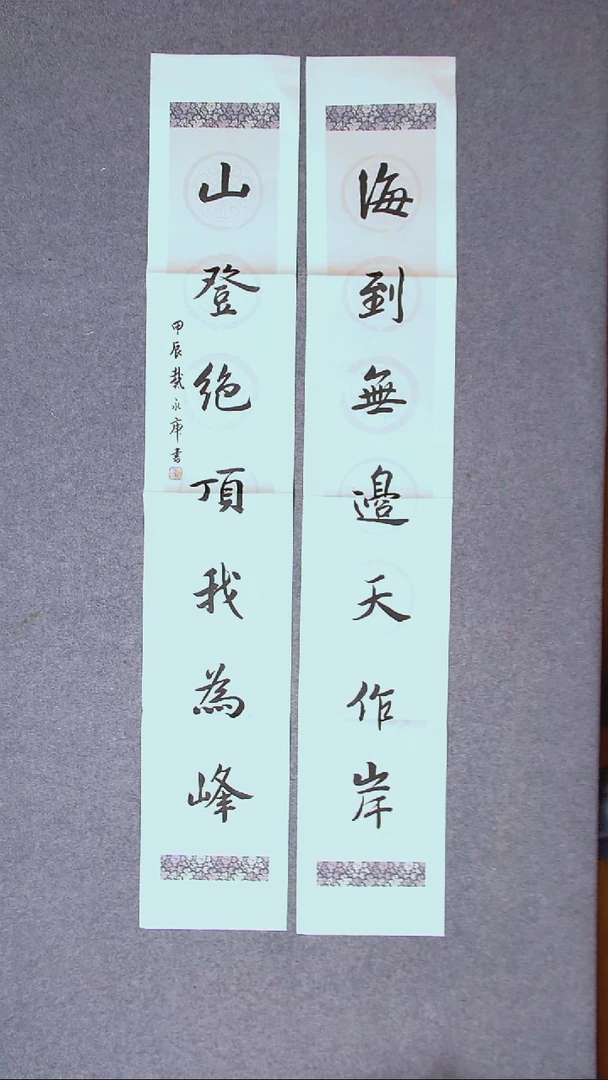 海到無邊天作岸
山登絶頂我為峰
甲辰 永庫書